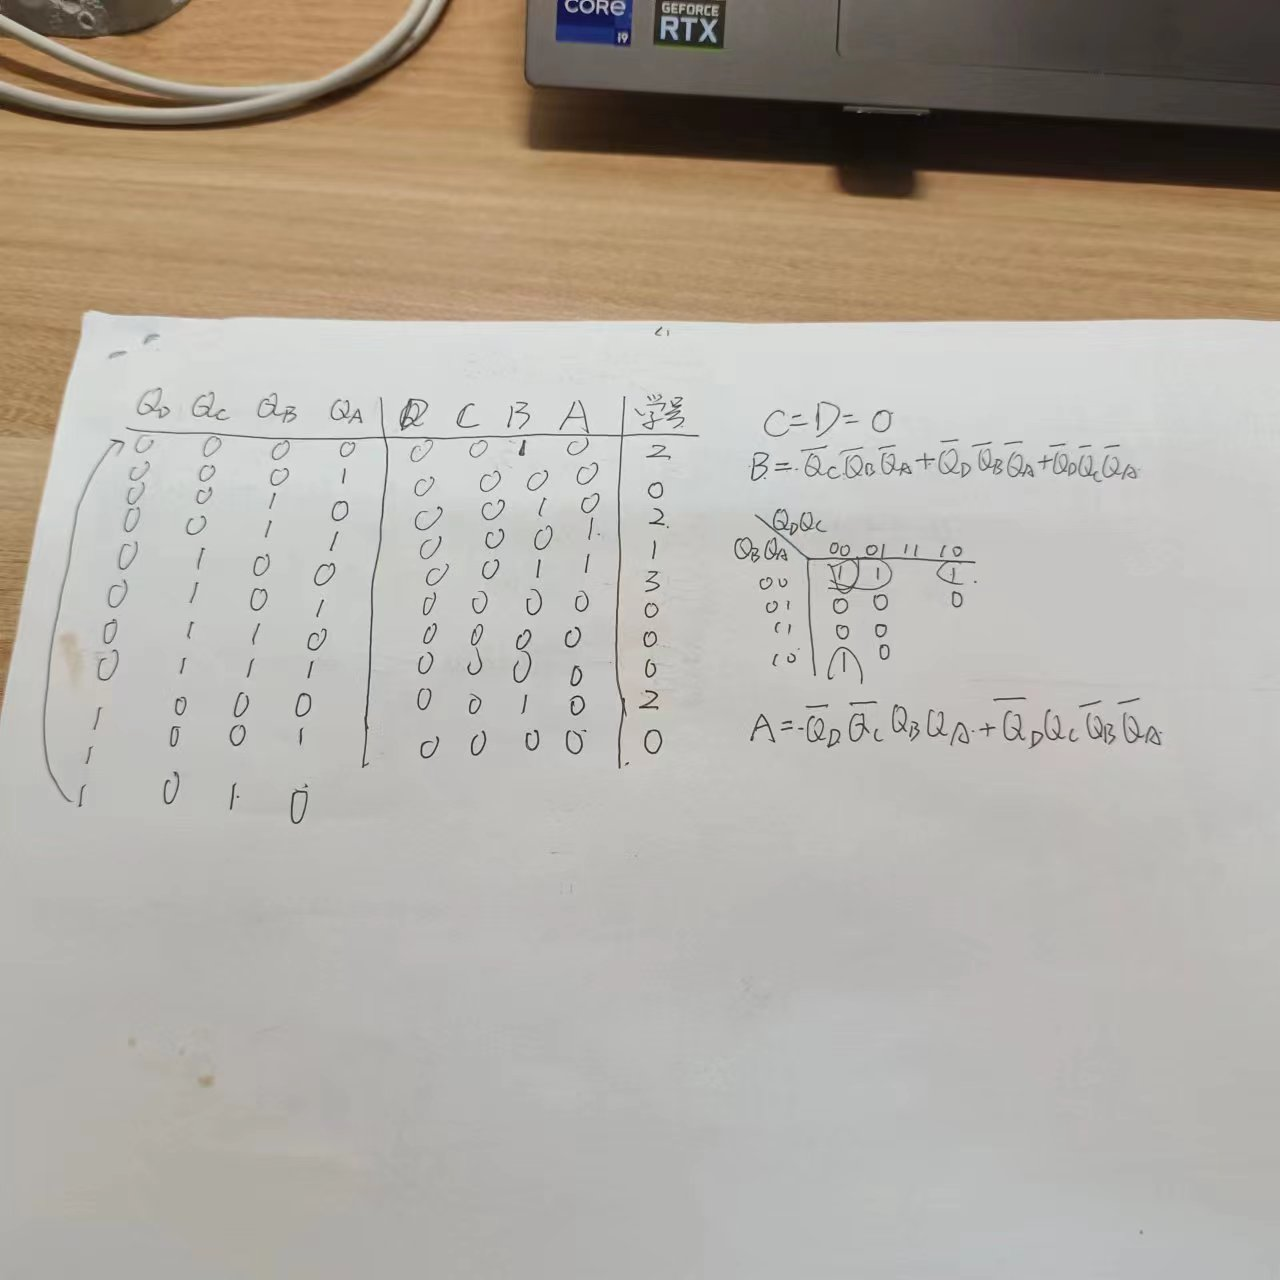 CORE i9
GEFORCE RTX
Q_D Q_C Q_B Q_A D C B A 学号
0 0 0 0 0 0 1 0 2
0 0 0 1 0 0 0 0 0
0 0 1 0 0 0 1 0 2
0 0 1 1 0 0 0 1 1
0 1 0 0 0 0 1 1 3
0 1 0 1 0 0 0 0 0
0 1 1 0 0 0 0 0 0
0 1 1 1 0 0 0 0 0
1 0 0 0 0 0 1 0 2
1 0 0 1 0 0 0 0 0
1 0 1 0
C=D=0
B=Q̅_C Q̅_B Q̅_A + Q̅_D Q̅_B Q̅_A + Q̅_D Q̅_C Q̅_A
Q_DQ_C
Q_BQ_A 00 01 11 10
00 1 1 1
01 0 0 0
11 0 0
10 1 0
A=Q̅_D Q̅_C Q_B Q_A + Q̅_D Q_C Q̅_B Q̅_A